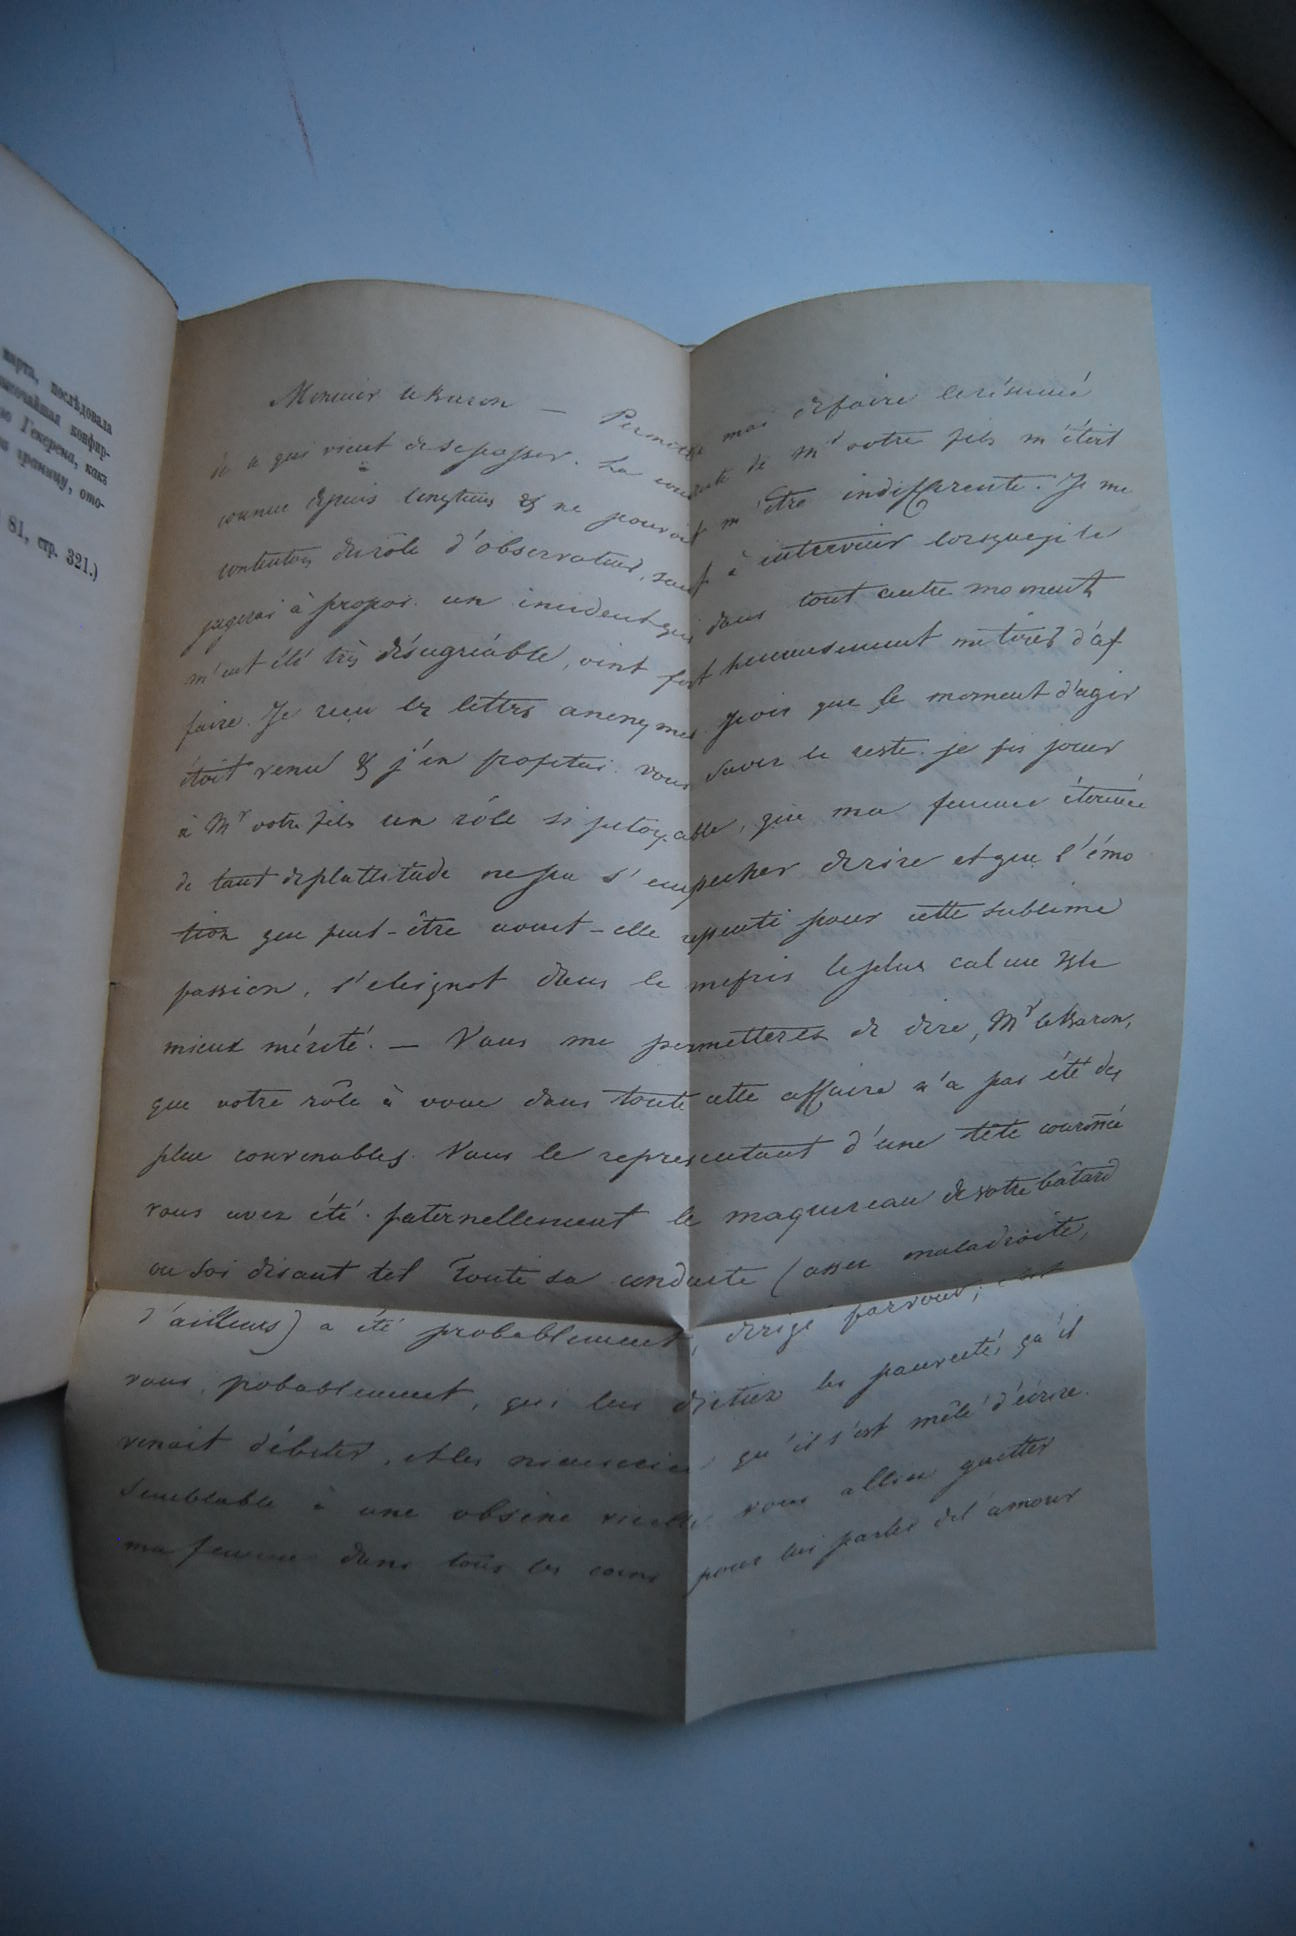 марта, послѣдовала
конфир-
Гекерена, какъ
границу, ото-
81, стр. 321.)
Monsieur le Baron — Permettez moi de faire le résumé
de ce qui vient de se passer. La conduite de Mr votre fils m'étoit
connue depuis longtems & ne pouvoit m'être indifferente. Je me
contentois du rôle d'observateur, sauf à intervenir lorsque je le
jugerai à propos. un incident qui dans tout autre moment
m'eut été très désagréable, vint fort heureusement me tirer d'af
faire. Je reçu les lettres anonymes. je vois que le moment d'agir
étoit venu & j'en profitai. vous savez le reste. je fis jouer
à Mr votre fils un rôle si pitoyable, que ma femme étonnée
de tant de plattitude ne pu s'empecher de rire et que l'émo
tion que peut-être avait-elle ressenti pour cette sublime
passion, s'eteignit dans le mepris le plus calme & le
mieux mérité. — Vous me permetterez de dire, Mr le Baron,
que votre rôle à vous dans toute cette affaire n'a pas été des
plus convenables. Vous le representant d'une tête couronné
vous avez été paternellement le maquereau de votre bâtard
ou soi disant tel Toute sa conduite (assez maladroite,
d'ailleurs) a été probablement dirigé par vous; c'est
vous, probablement, qui lui dictiez les pauvretés qu'il
venait débiter, et les niaiseries qu'il s'est mêlé d'écrire.
Semblable à une obsène vieille vous alliez guetter
ma femme dans tous les coins pour lui parler de l'amour